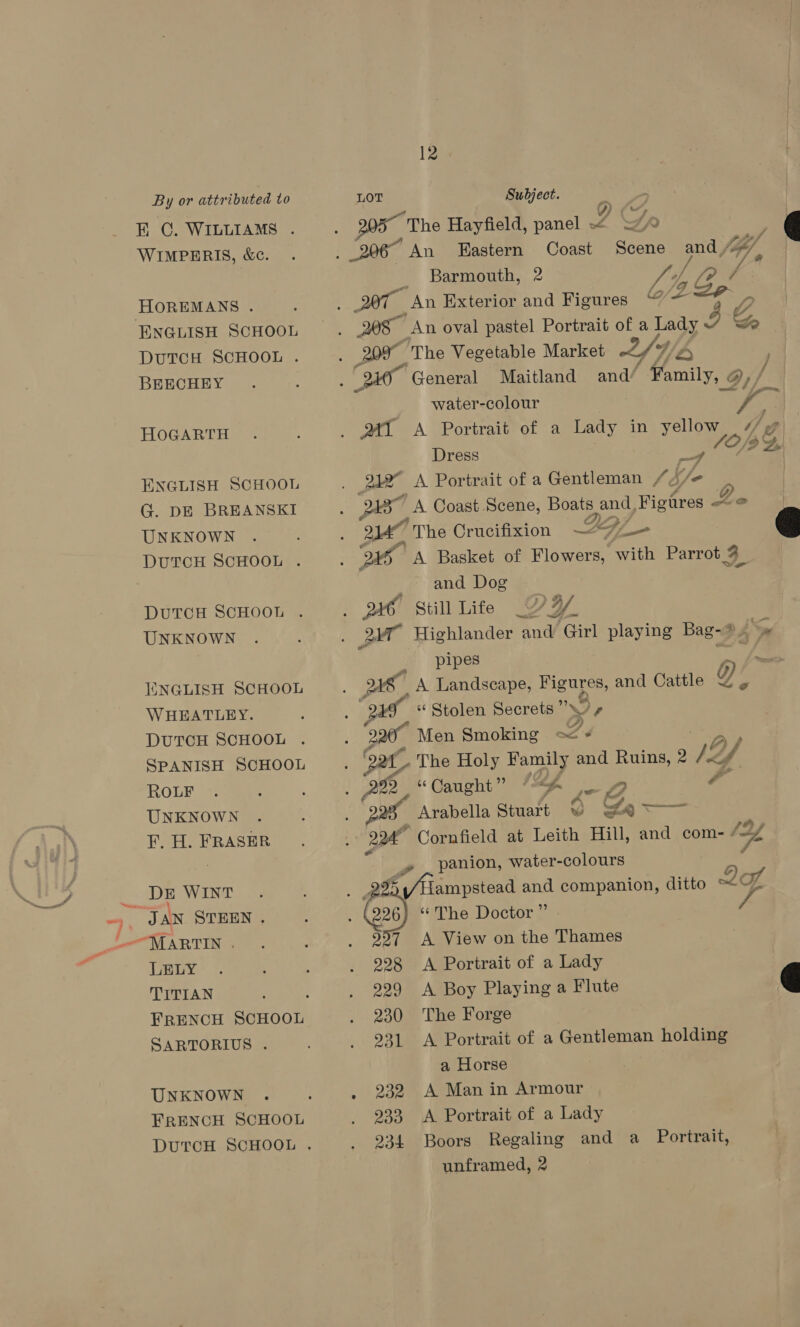 12
By or attributed to LOT Subject.
E C. WILLIAMS . . 205 The Hayfield, panel
WIMPERIS, &c. . . 206 An Eastern Coast Scene and
Barmouth, 2
HOREMANS . . . 207 An Exterior and Figures
ENGLISH SCHOOL . 208 An oval pastel Portrait of a Lady
DUTCH SCHOOL . . 209 The Vegetable Market
BEECHEY . . . 210 General Maitland and Family,
water-colour
HOGARTH . . . 211 A Portrait of a Lady in yellow
Dress
ENGLISH SCHOOL . 212 A Portrait of a Gentleman
G. DE BREANSKI . 213 A Coast Scene, Boats and Figures
UNKNOWN . . . 214 The Crucifixion
DUTCH SCHOOL . . 215 A Basket of Flowers, with Parrot
and Dog
DUTCH SCHOOL . . 216 Still Life
UNKNOWN . . . 217 Highlander and Girl playing Bag-
pipes
ENGLISH SCHOOL . 218 A Landscape, Figures, and Cattle
WHEATLEY. . . 219 "Stolen Secrets"
DUTCH SCHOOL . . 220 Men Smoking
SPANISH SCHOOL . 221 The Holy Family and Ruins, 2
ROLF . . . . 222 "Caught"
UNKNOWN . . . 223 Arabella Stuart
F. H. FRASER . . 224 Cornfield at Leith Hill, and com-
panion, water-colours
DE WINT . . . 225 Hampstead and companion, ditto
JAN STEEN . . . 226 "The Doctor"
MARTIN . . . . 227 A View on the Thames
LELY . . . . 228 A Portrait of a Lady
TITIAN . . . 229 A Boy Playing a Flute
FRENCH SCHOOL . 230 The Forge
SARTORIUS . . . 231 A Portrait of a Gentleman holding
a Horse
UNKNOWN . . . 232 A Man in Armour
FRENCH SCHOOL . 233 A Portrait of a Lady
DUTCH SCHOOL . . 234 Boors Regaling and a Portrait,
unframed, 2